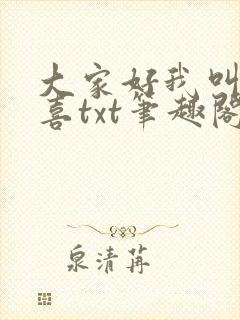 大家好我叫
喜txt笔趣阁
泉清苒